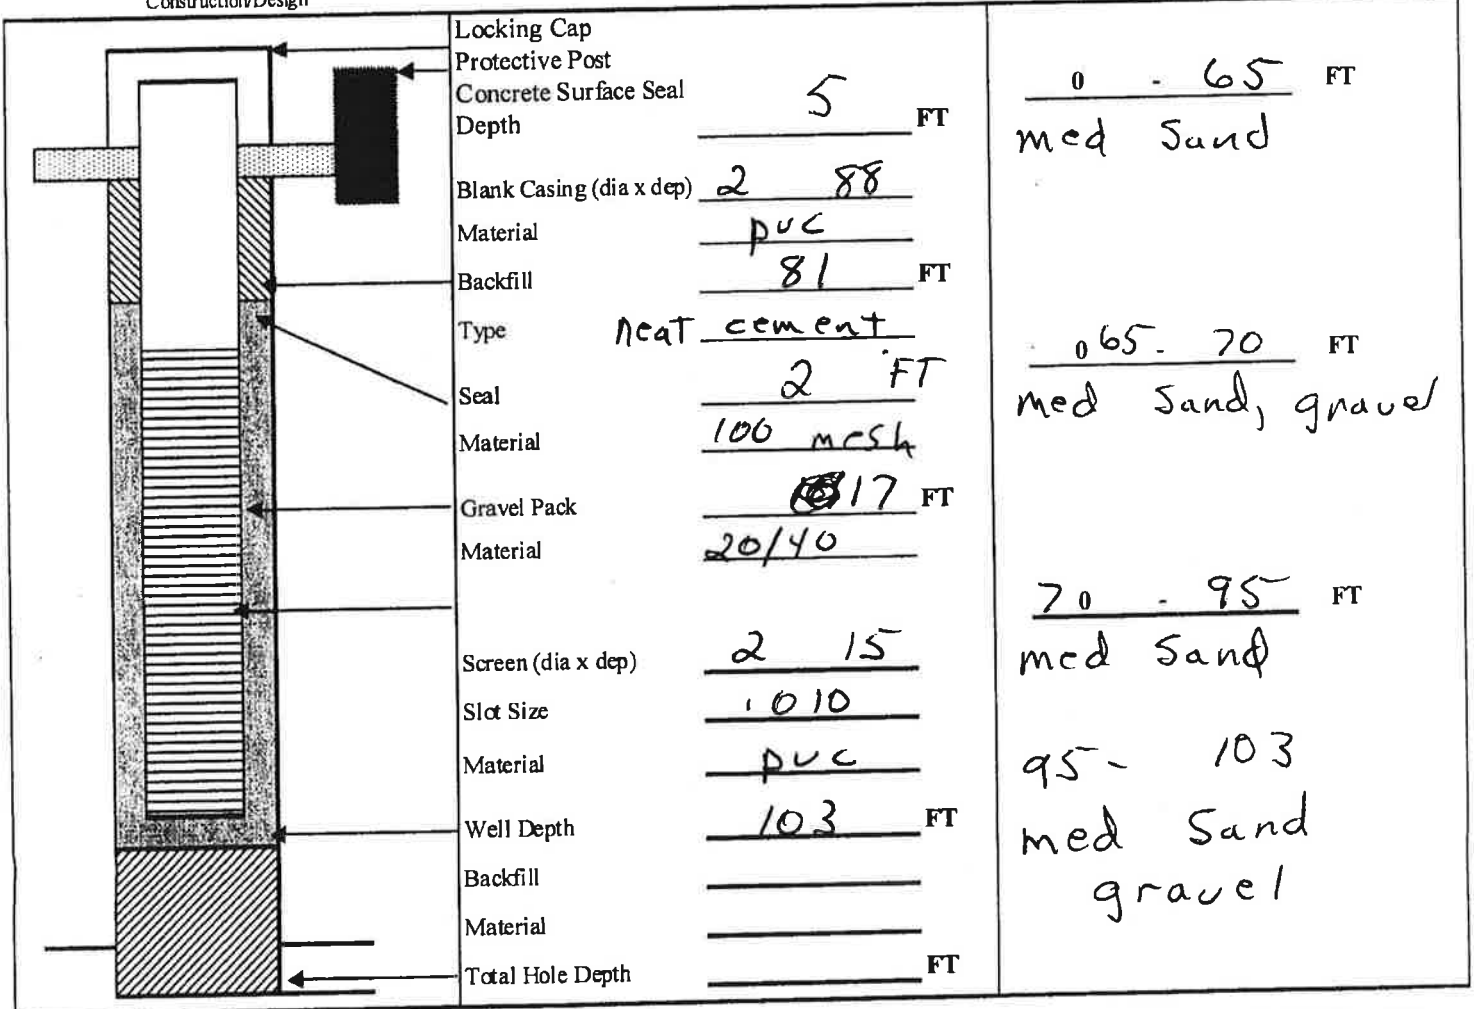 Construction/Design
Locking Cap
Protective Post
Concrete Surface Seal
Depth 5 FT
Blank Casing (dia x dep) 2 88
Material pvc
Backfill 81 FT
Type neat cement
Seal 2 FT
Material 100 mesh
Gravel Pack 17 FT
Material 20/40
Screen (dia x dep) 2 15
Slot Size .010
Material pvc
Well Depth 103 FT
Backfill
Material
Total Hole Depth FT
0 - 65 FT
med Sand
0 65 - 70 FT
med Sand, gravel
70 - 95 FT
med Sand
95 - 103
med Sand
gravel